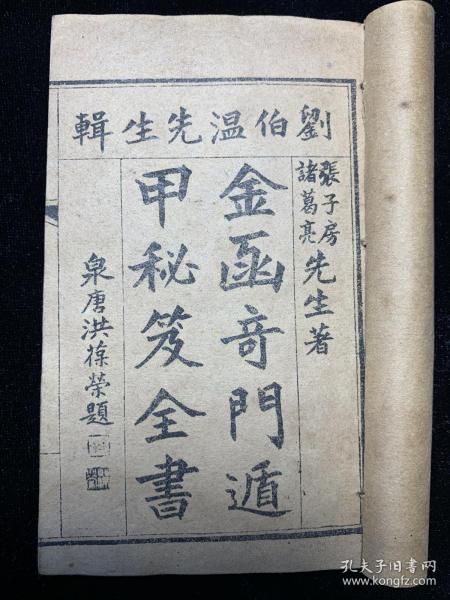 劉伯温先生輯
張子房
諸葛亮
先生著
金函奇門遁
甲秘笈全書
泉唐洪葆榮題
孔夫子旧书网
www.kongfz.com